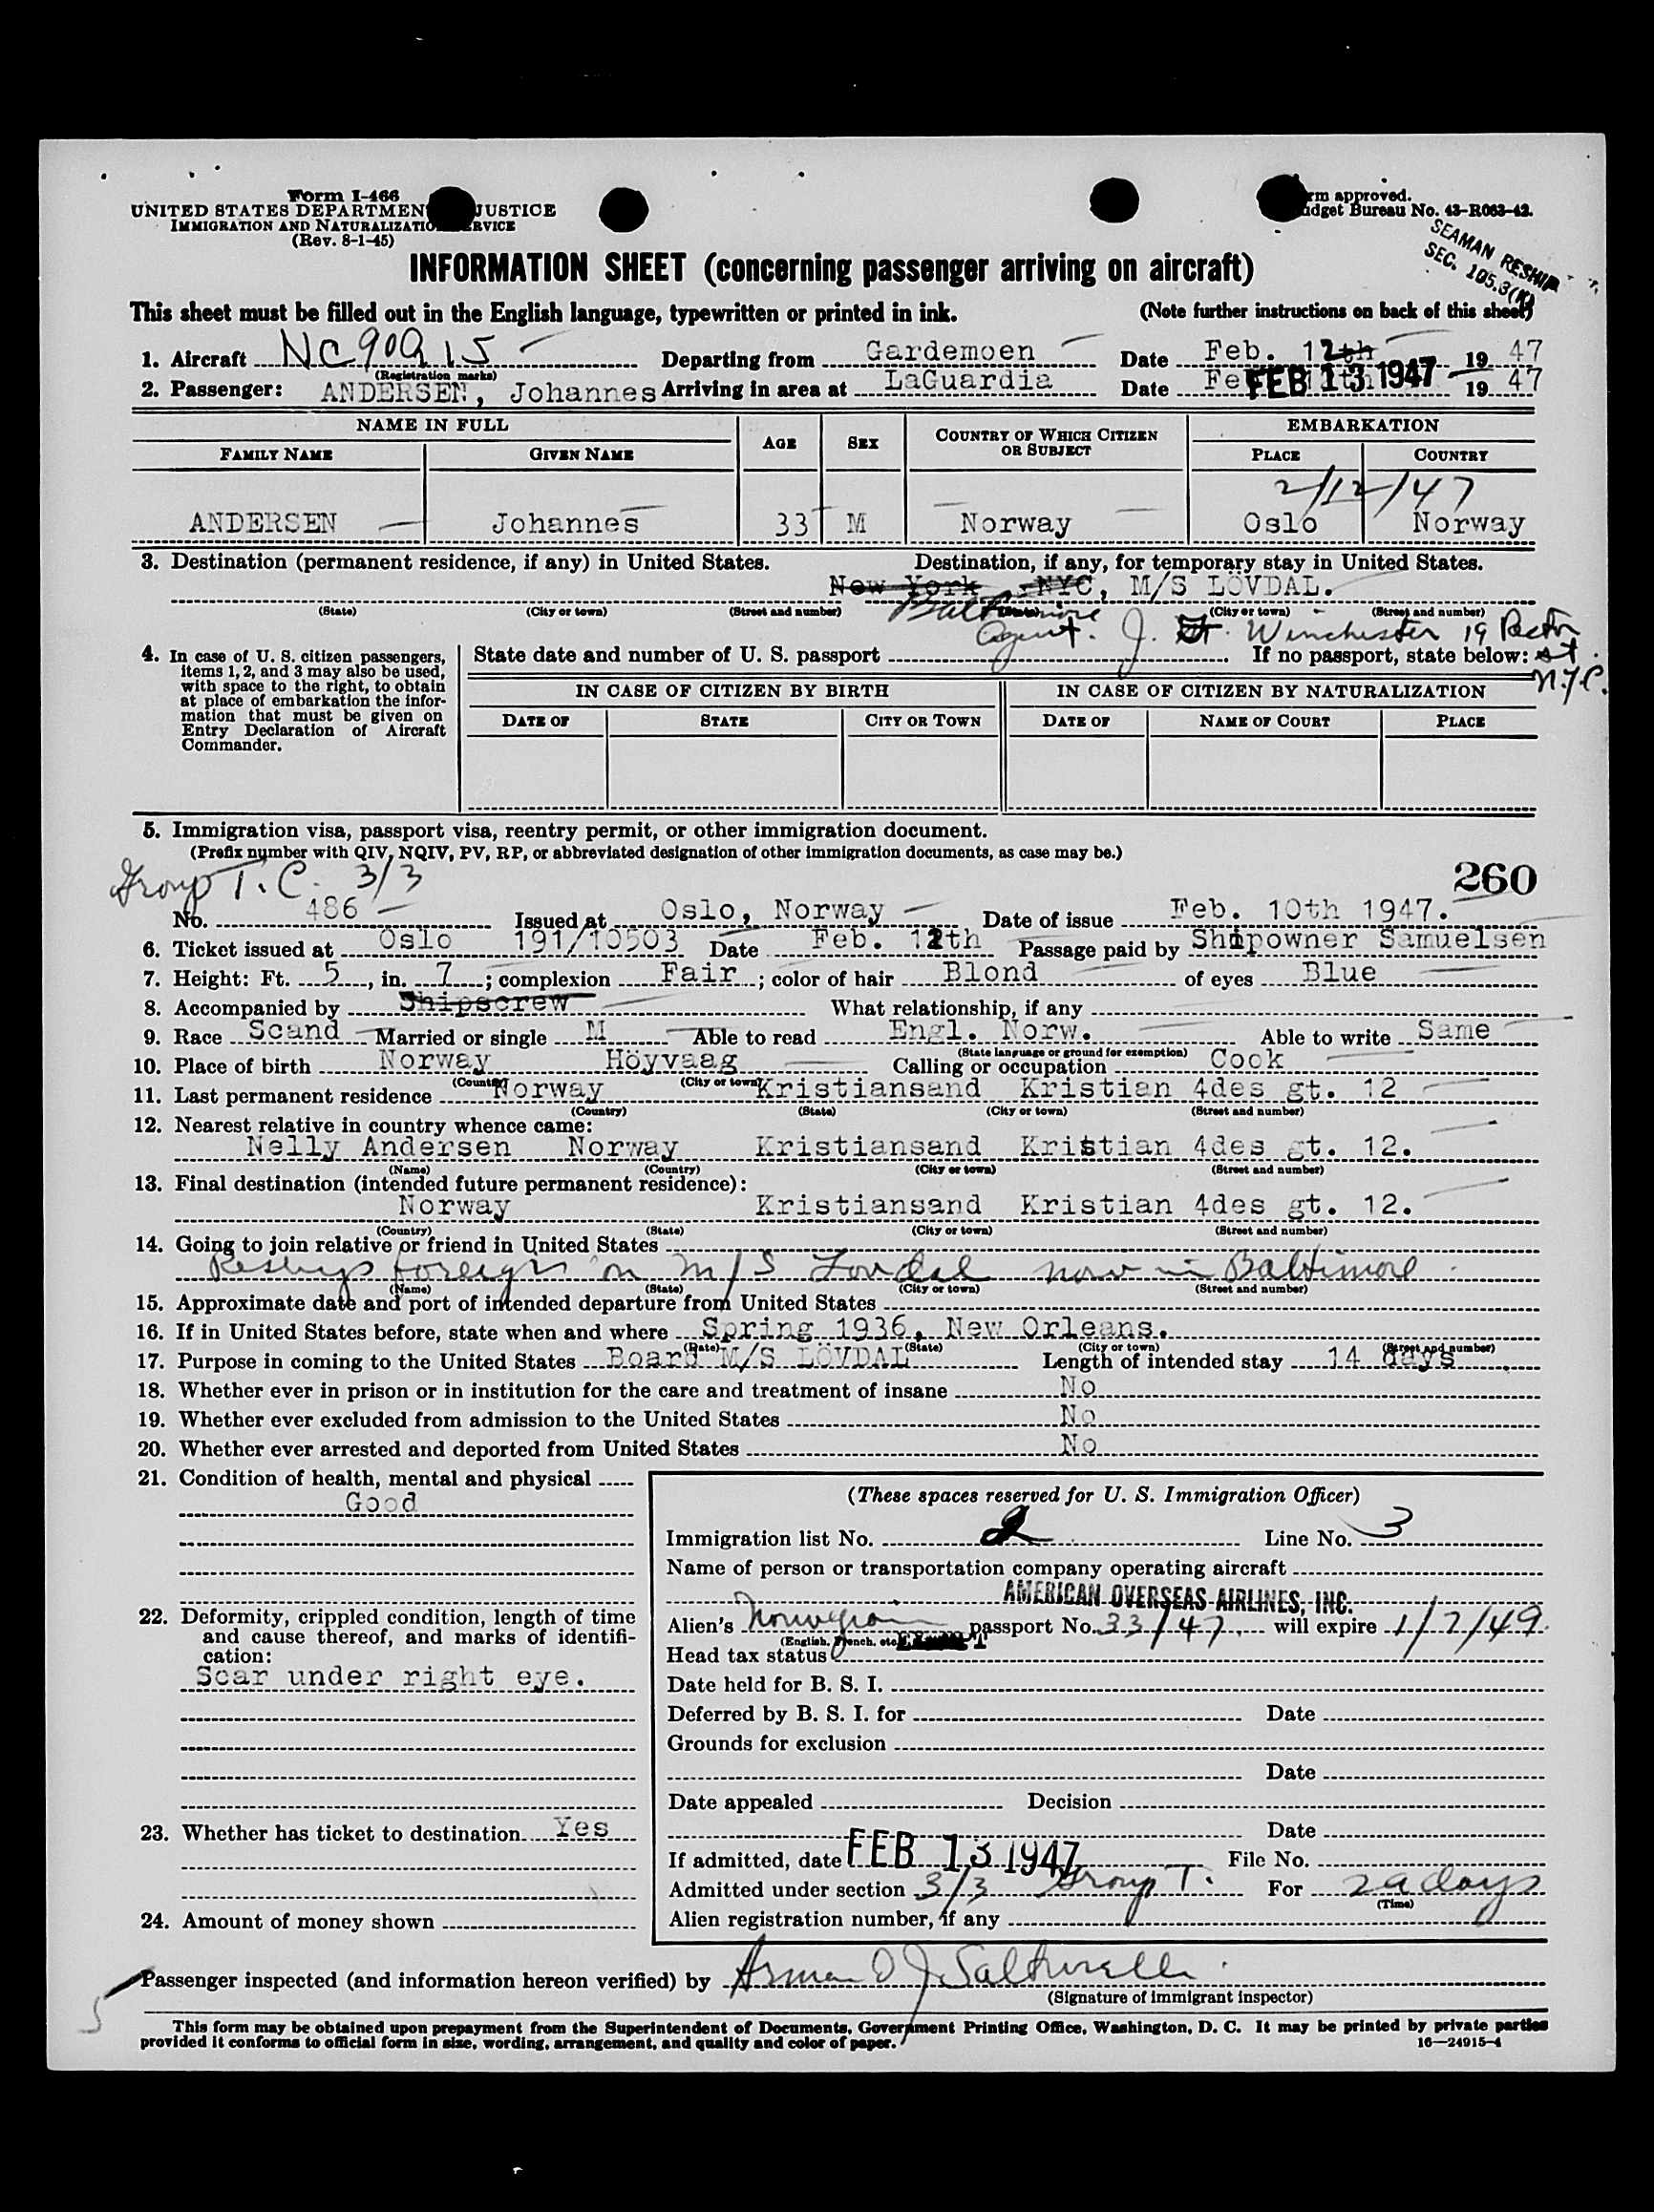 Form I-466
UNITED STATES DEPARTMEN JUSTICE
IMMIGRATION AND NATURALIZATIO RVICE
(Rev. 8-1-45)
rm approved.
udget Bureau No. 43-R063-42.
SEAMAN RESHIP
SEC. 105.3
INFORMATION SHEET (concerning passenger arriving on aircraft)
This sheet must be filled out in the English language, typewritten or printed in ink. (Note further instructions on back of this sheet)
1. Aircraft NC90915 Departing from Gardemoen Date Feb. 12th 19 47
(Registration marks)
2. Passenger: ANDERSEN, Johannes Arriving in area at LaGuardia Date FEB 13 1947 19 47
NAME IN FULL AGE SEX COUNTRY OF WHICH CITIZEN OR SUBJECT EMBARKATION
FAMILY NAME GIVEN NAME PLACE COUNTRY
2/12/47
ANDERSEN Johannes 33 M Norway Oslo Norway
3. Destination (permanent residence, if any) in United States. Destination, if any, for temporary stay in United States.
New York, NYC, M/S LÖVDAL.
(State) (City or town) (Street and number) (City or town) (Street and number)
Baltimore
Agent. J. Winchester 19 Rector
st.
N.Y.C.
4. In case of U. S. citizen passengers, items 1, 2, and 3 may also be used, with space to the right, to obtain at place of embarkation the information that must be given on Entry Declaration of Aircraft Commander.
State date and number of U. S. passport If no passport, state below:
IN CASE OF CITIZEN BY BIRTH IN CASE OF CITIZEN BY NATURALIZATION
DATE OF STATE CITY OR TOWN DATE OF NAME OF COURT PLACE
5. Immigration visa, passport visa, reentry permit, or other immigration document.
(Prefix number with QIV, NQIV, PV, RP, or abbreviated designation of other immigration documents, as case may be.)
Group T. C. 3/3
260
No. 486 Issued at Oslo, Norway Date of issue Feb. 10th 1947.
6. Ticket issued at Oslo 191/10503 Date Feb. 12th Passage paid by Shipowner Samuelsen
7. Height: Ft. 5, in. 7; complexion Fair; color of hair Blond of eyes Blue
8. Accompanied by Shipscrew What relationship, if any
9. Race Scand Married or single M Able to read Engl. Norw. Able to write Same
(State language or ground for exemption)
10. Place of birth Norway Höyvaag Calling or occupation Cook
(Country) (City or town)
11. Last permanent residence Norway Kristiansand Kristian 4des gt. 12
(Country) (State) (City or town) (Street and number)
12. Nearest relative in country whence came:
Nelly Andersen Norway Kristiansand Kristian 4des gt. 12.
(Name) (Country) (City or town) (Street and number)
13. Final destination (intended future permanent residence):
Norway Kristiansand Kristian 4des gt. 12.
(Country) (State) (City or town) (Street and number)
14. Going to join relative or friend in United States
Reships foreign on M/S Lovdal now in Baltimore.
(Name) (State) (City or town) (Street and number)
15. Approximate date and port of intended departure from United States
16. If in United States before, state when and where Spring 1936, New Orleans.
(Date) (State) (City or town) (Street and number)
17. Purpose in coming to the United States Board M/S LÖVDAL Length of intended stay 14 days
18. Whether ever in prison or in institution for the care and treatment of insane No
19. Whether ever excluded from admission to the United States No
20. Whether ever arrested and deported from United States No
21. Condition of health, mental and physical
Good
22. Deformity, crippled condition, length of time
and cause thereof, and marks of identifi-
cation:
Scar under right eye.
23. Whether has ticket to destination Yes
24. Amount of money shown
(These spaces reserved for U. S. Immigration Officer)
Immigration list No. 2 Line No. 3
Name of person or transportation company operating aircraft
AMERICAN OVERSEAS AIRLINES, INC.
Alien's Norwegian passport No. 33/47, will expire 1/7/49.
(English, French, etc.)
Head tax status
Date held for B. S. I.
Deferred by B. S. I. for Date
Grounds for exclusion
Date
Date appealed Decision
Date
If admitted, date FEB 13 1947 File No.
Admitted under section 3/3 Group T. For 29 days
(Time)
Alien registration number, if any
Passenger inspected (and information hereon verified) by
(Signature of immigrant inspector)
This form may be obtained upon prepayment from the Superintendent of Documents, Government Printing Office, Washington, D. C. It may be printed by private parties
provided it conforms to official form in size, wording, arrangement, and quality and color of paper.
16—24915-4